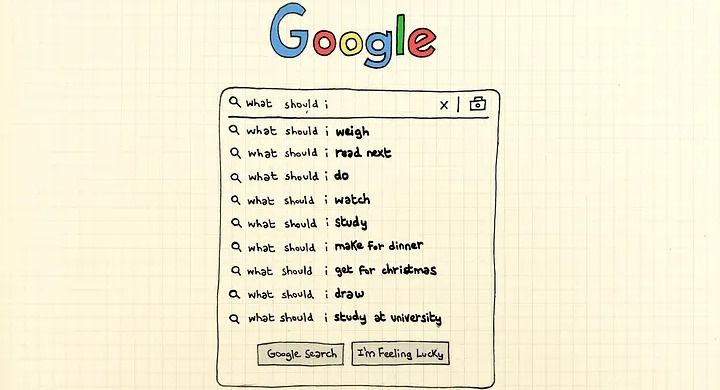 Google
what should i
what should i weigh
what should i read next
what should i do
what should i watch
what should i study
what should i make for dinner
what should i get for christmas
what should i draw
what should i study at university
Google Search
I'm Feeling Lucky